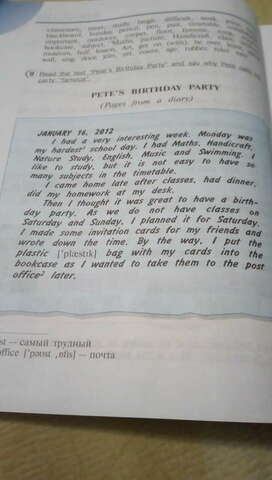 Read the text 'Pete's Birthday Party' and say why Pete
party "funny".
PETE'S BIRTHDAY PARTY
(Pages from a diary)
JANUARY 16, 2012
I had a very interesting week. Monday was
my hardest¹ school day. I had Maths, Handicraft,
Nature Study, English, Music and Swimming. I
like to study, but it is not easy to have so
many subjects in the timetable.
I came home late after classes, had dinner,
did my homework at my desk.
Then I thought it was great to have a birth-
day party. As we do not have classes on
Saturday and Sunday, I planned it for Saturday.
I made some invitation cards for my friends and
wrote down the time. By the way, I put the
plastic ['plæstɪk] bag with my cards into the
bookcase as I wanted to take them to the post
office² later.
st — самый трудный
office ['pəʊst ,ɒfɪs] — почта